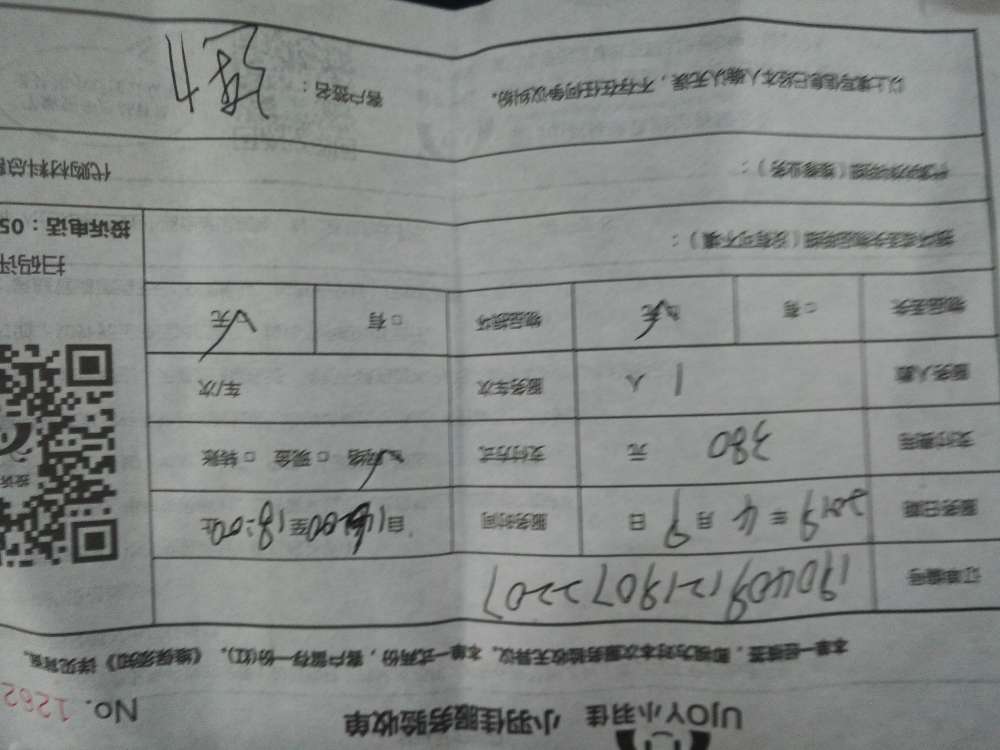 UJOY小羽佳 小羽佳服务验收单
No. 1262
本单一经填签，即视为对本次服务验收无异议。本单一式两份，客户留存一份(红)。《维保须知》详见背页
订单编号 1904091219072207
服务日期 2019年4月9日 服务时间 自 00至18:00止
支付费用 380 元 支付方式 ☑网络 □现金 □转账
服务人数 1 人 服务车次 车/次
物品丢失 □有 ☑无 物品损坏 □有 ☑无
损坏或丢失物品明细（没有可不填）：
投诉
扫码评
投诉电话：05
（维修业务）：
代购材料总
以上填写信息已经本人确认无误，不存在任何争议纠纷。 客户签名：